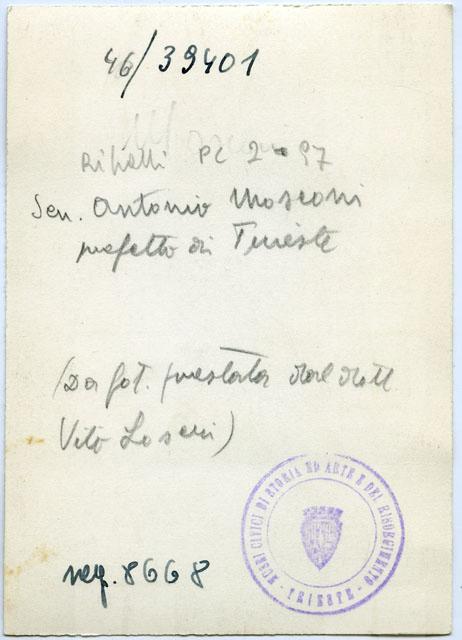 46/39401
Ritratti PC 2-97
Sen. Antonio Mosconi
prefetto di Trieste
(Da fot. prestata dal dott
Vito Loseri)
MUSEI CIVICI DI STORIA ED ARTE E DEL RISORGIMENTO
- TRIESTE -
neg. 8668